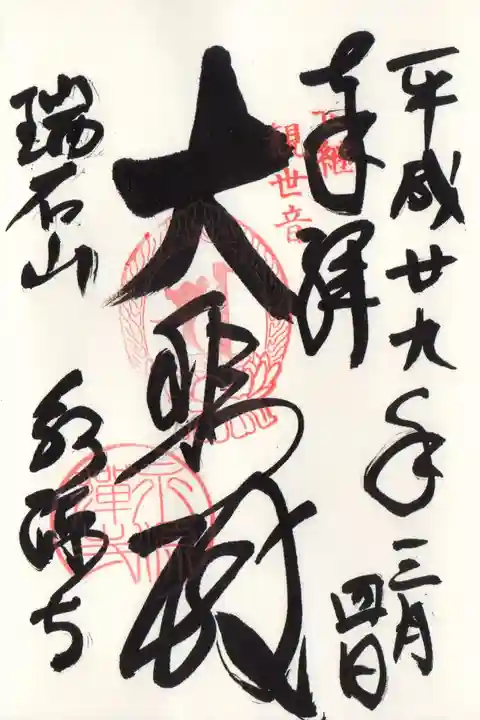 奉拝
平成廿九年三月四日
世継
観世音
大悲殿
瑞石山 永源寺